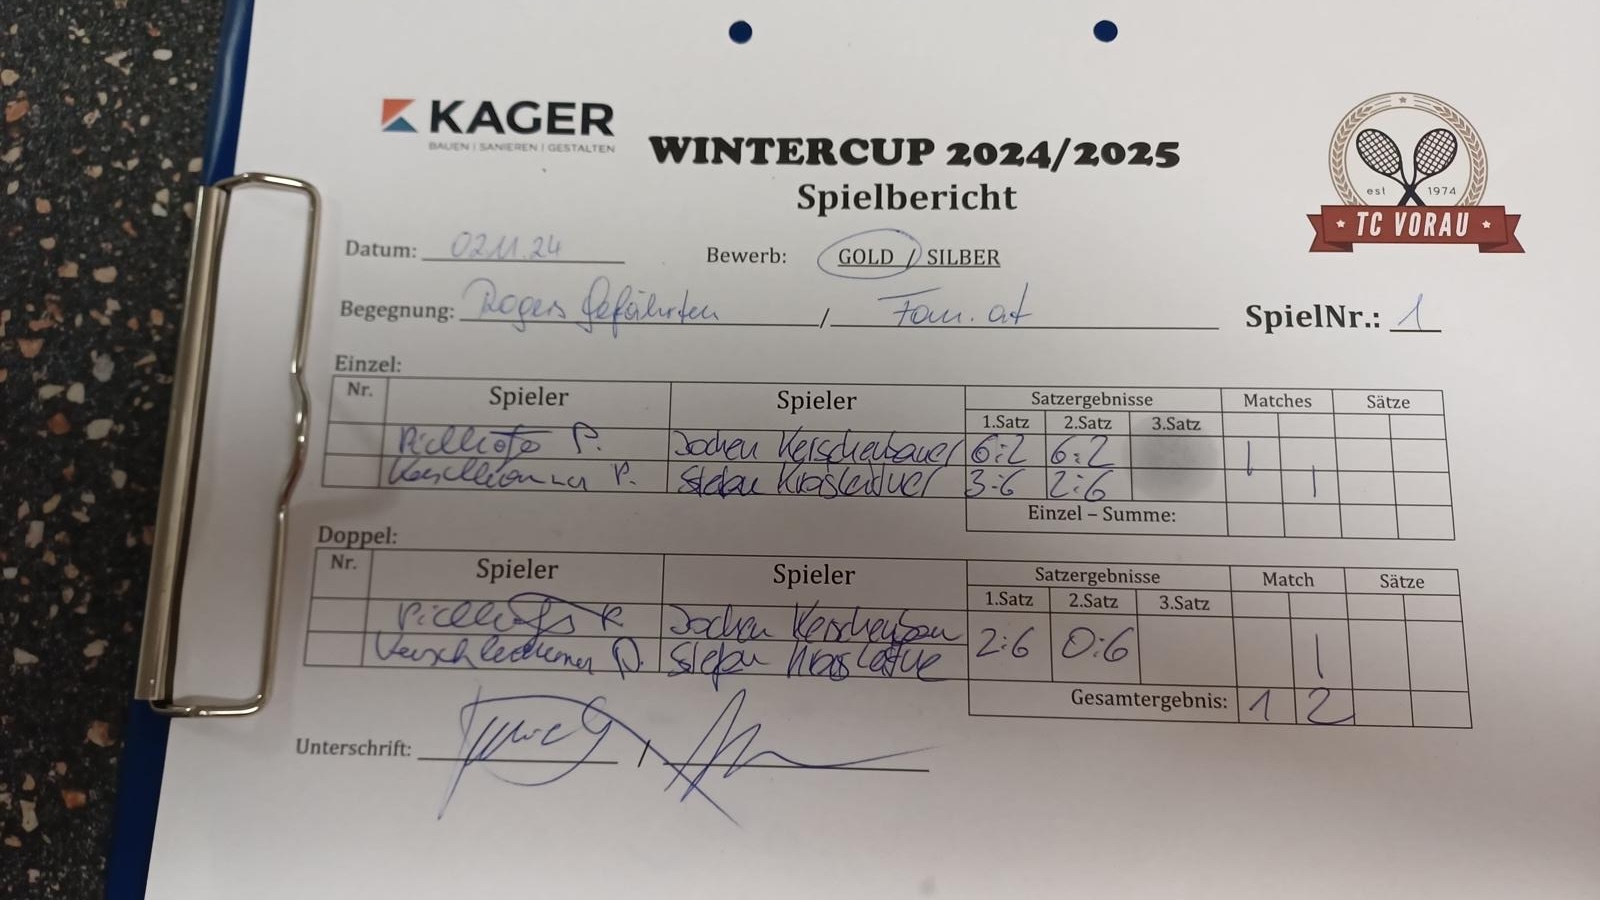 KAGER
BAUEN | SANIEREN | GESTALTEN
WINTERCUP 2024/2025
Spielbericht
est 1974
TC VORAU
Datum: 02.11.24 Bewerb: GOLD / SILBER
Begegnung: Rogers Gefährten / Fam. at SpielNr.: 1
Einzel:
Nr. Spieler Spieler Satzergebnisse Matches Sätze
1.Satz 2.Satz 3.Satz
P. Jochen Kerschenbauer 6:2 6:2 1
P. Stefan 3:6 2:6 1
Einzel – Summe:
Doppel:
Nr. Spieler Spieler Satzergebnisse Match Sätze
1.Satz 2.Satz 3.Satz
Jochen 2:6 0:6 1
Stefan
Gesamtergebnis: 1 2
Unterschrift: /